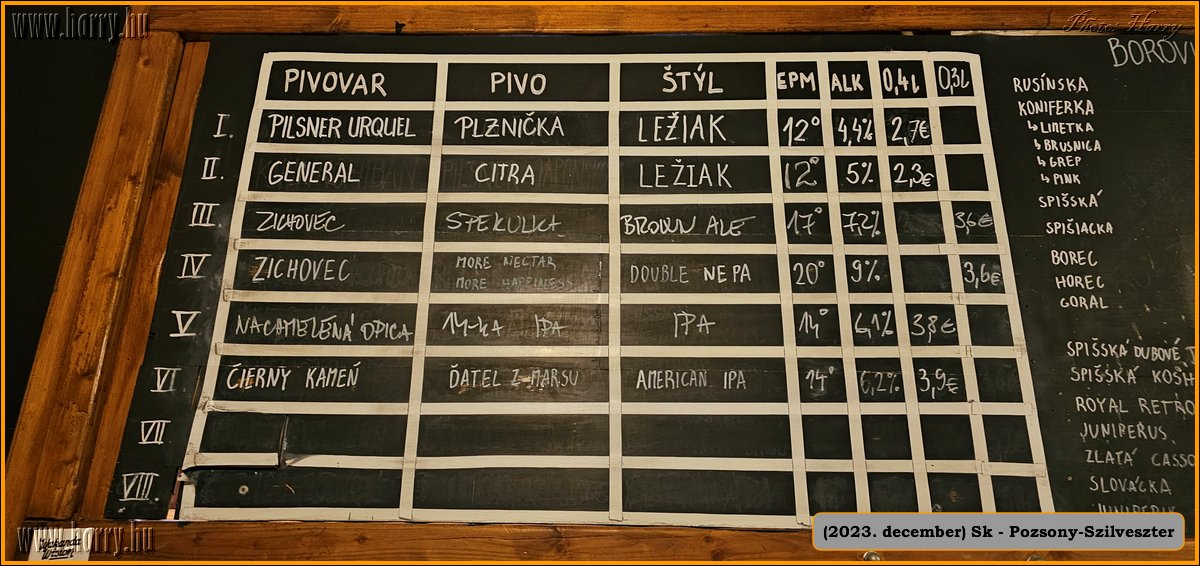 www.harry.hu
Photo: Harry
PIVOVAR PIVO ŠTÝL EPM ALK 0,4L 0,3L
I. PILSNER URQUEL PLZNIČKA LEŽIAK 12° 4,4% 2,7€
II. GENERAL CITRA LEŽIAK 12° 5% 2,3€
III. ZICHOVEC SPEKULKA BROWN ALE 17° 7,2% 3,6€
IV. ZICHOVEC MORE NECTAR DOUBLE NEPA 20° 9% 3,6€
MORE HAPPINESS
V. NACHMELENÁ OPICA 14-KA IPA IPA 14° 6,1% 3,8€
VI. ČIERNY KAMEŇ ĎATEL Z MARSU AMERICAN IPA 14° 6,2% 3,9€
VII.
VIII.
BOROVI
RUSÍNSKA
KONIFERKA
↳ LIMETKA
↳ BRUSNICA
↳ GREP
↳ PINK
SPIŠSKÁ
SPIŠIACKA
BOREC
HOREC
GORAL
SPIŠSKÁ DUBOVÉ
SPIŠSKÁ KOŠH
ROYAL RETRO
JUNIPERUS
ZLATÁ CASSO
SLOVÁCKA
www.harry.hu
(2023. december) Sk - Pozsony-Szilveszter